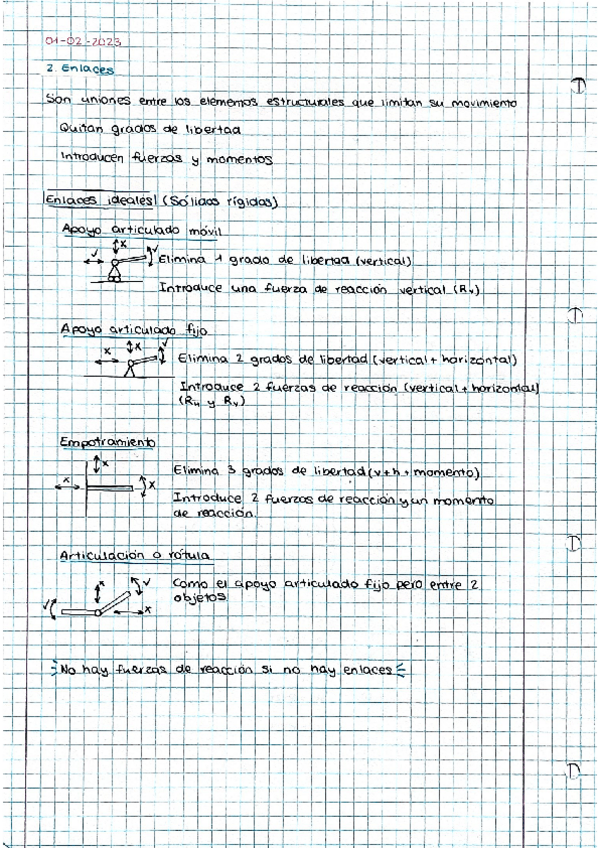 01-02-2023
2. Enlaces
Son uniones entre los elementos estructurales que limitan su movimiento
Quitan grados de libertad
Introducen fuerzas y momentos
Enlaces ideales (Sólidos rígidos)
Apoyo articulado móvil
x
✓ ✓ Elimina 1 grado de libertad (vertical)
Introduce una fuerza de reacción vertical (Rv)
Apoyo articulado fijo
x x ✓
Elimina 2 grados de libertad (vertical + horizontal)
Introduce 2 fuerzas de reacción (vertical + horizontal)
(RH y Rv)
Empotramiento
x
x x Elimina 3 grados de libertad (v + h + momento)
Introduce 2 fuerzas de reacción y un momento
de reacción.
Articulación o rótula
x ✓ Como el apoyo articulado fijo pero entre 2
✓ x objetos
No hay fuerzas de reacción si no hay enlaces